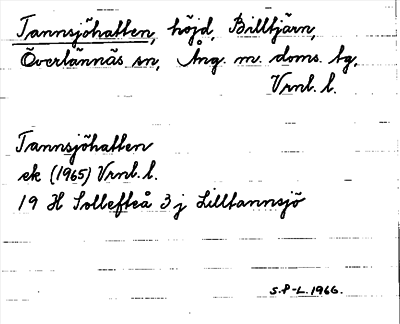 Tannsjöhatten, höjd, Billtjärn,
Överlännäs sn, Ång. m. doms. tg,
Vrnl. l.
Tannsjöhatten
ek (1965) Vrnl. l.
19 H Sollefteå 3 j Lilltannsjö
S.P-L. 1966.